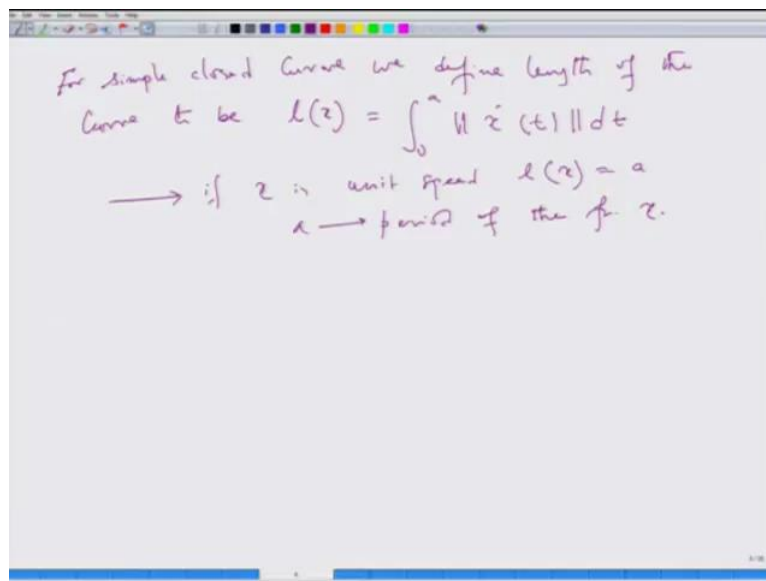 For simple closed Curve we define length of the
Curve to be l(r) = ∫₀ᵃ || ṙ (t) || dt
⟶ if r is unit speed l(r) = a
a ⟶ period of the fn. r.